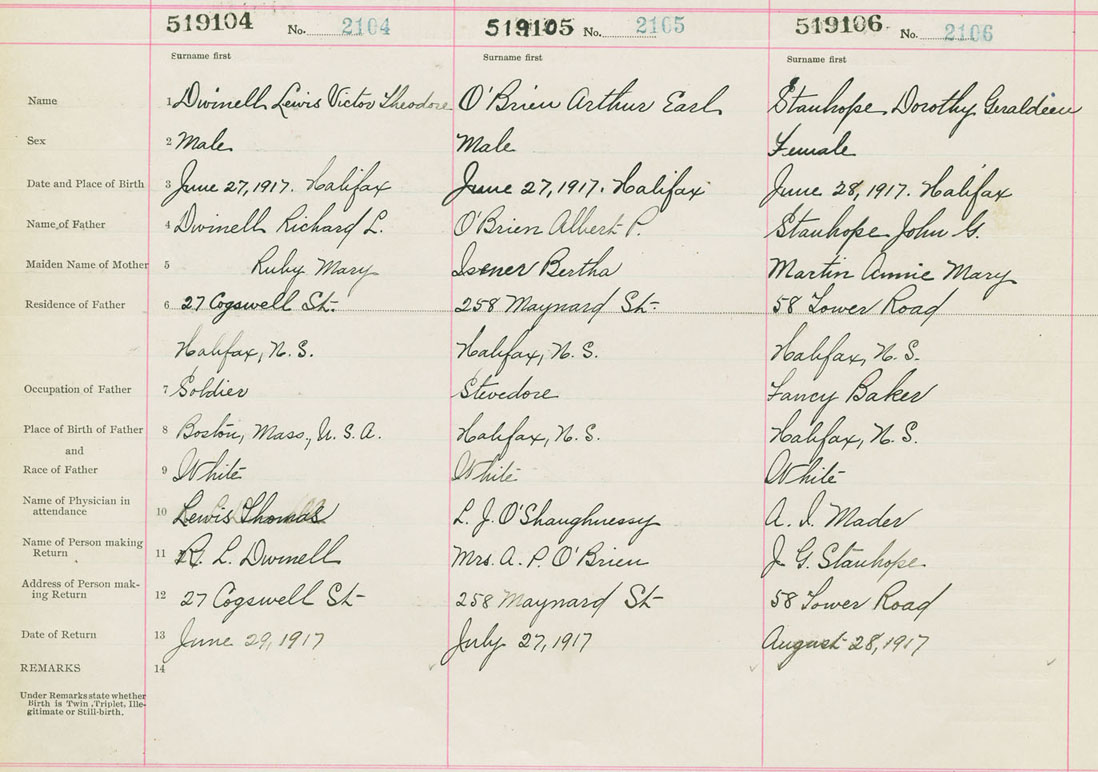 519104 No. 2104 519105 No. 2105 519106 No. 2106
Surname first Surname first Surname first
Name 1 Dwinell Lewis Victor Theodore O'Brien Arthur Earl Stanhope Dorothy Geraldieen
Sex 2 Male Male Female
Date and Place of Birth 3 June 27, 1917. Halifax June 27, 1917. Halifax June 28, 1917. Halifax
Name of Father 4 Dwinell Richard L. O'Brien Albert P. Stanhope John G.
Maiden Name of Mother 5 Ruby Mary Isener Bertha Martin Annie Mary
Residence of Father 6 27 Cogswell St. 258 Maynard St. 58 Tower Road
Halifax, N.S. Halifax, N.S. Halifax, N.S.
Occupation of Father 7 Soldier Stevedore Fancy Baker
Place of Birth of Father 8 Boston, Mass., U.S.A. Halifax, N.S. Halifax, N.S.
and
Race of Father 9 White White White
Name of Physician in
attendance 10 Lewis Thomas L. J. O'Shaughnessy A. I. Mader
Name of Person making
Return 11 R. L. Dwinell Mrs. A. P. O'Brien J G. Stanhope
Address of Person mak-
ing Return 12 27 Cogswell St 258 Maynard St 58 Tower Road
Date of Return 13 June 29, 1917 July 27, 1917 August 28, 1917
REMARKS 14
Under Remarks state whether
Birth is Twin, Triplet, Ille-
gitimate or Still-birth.